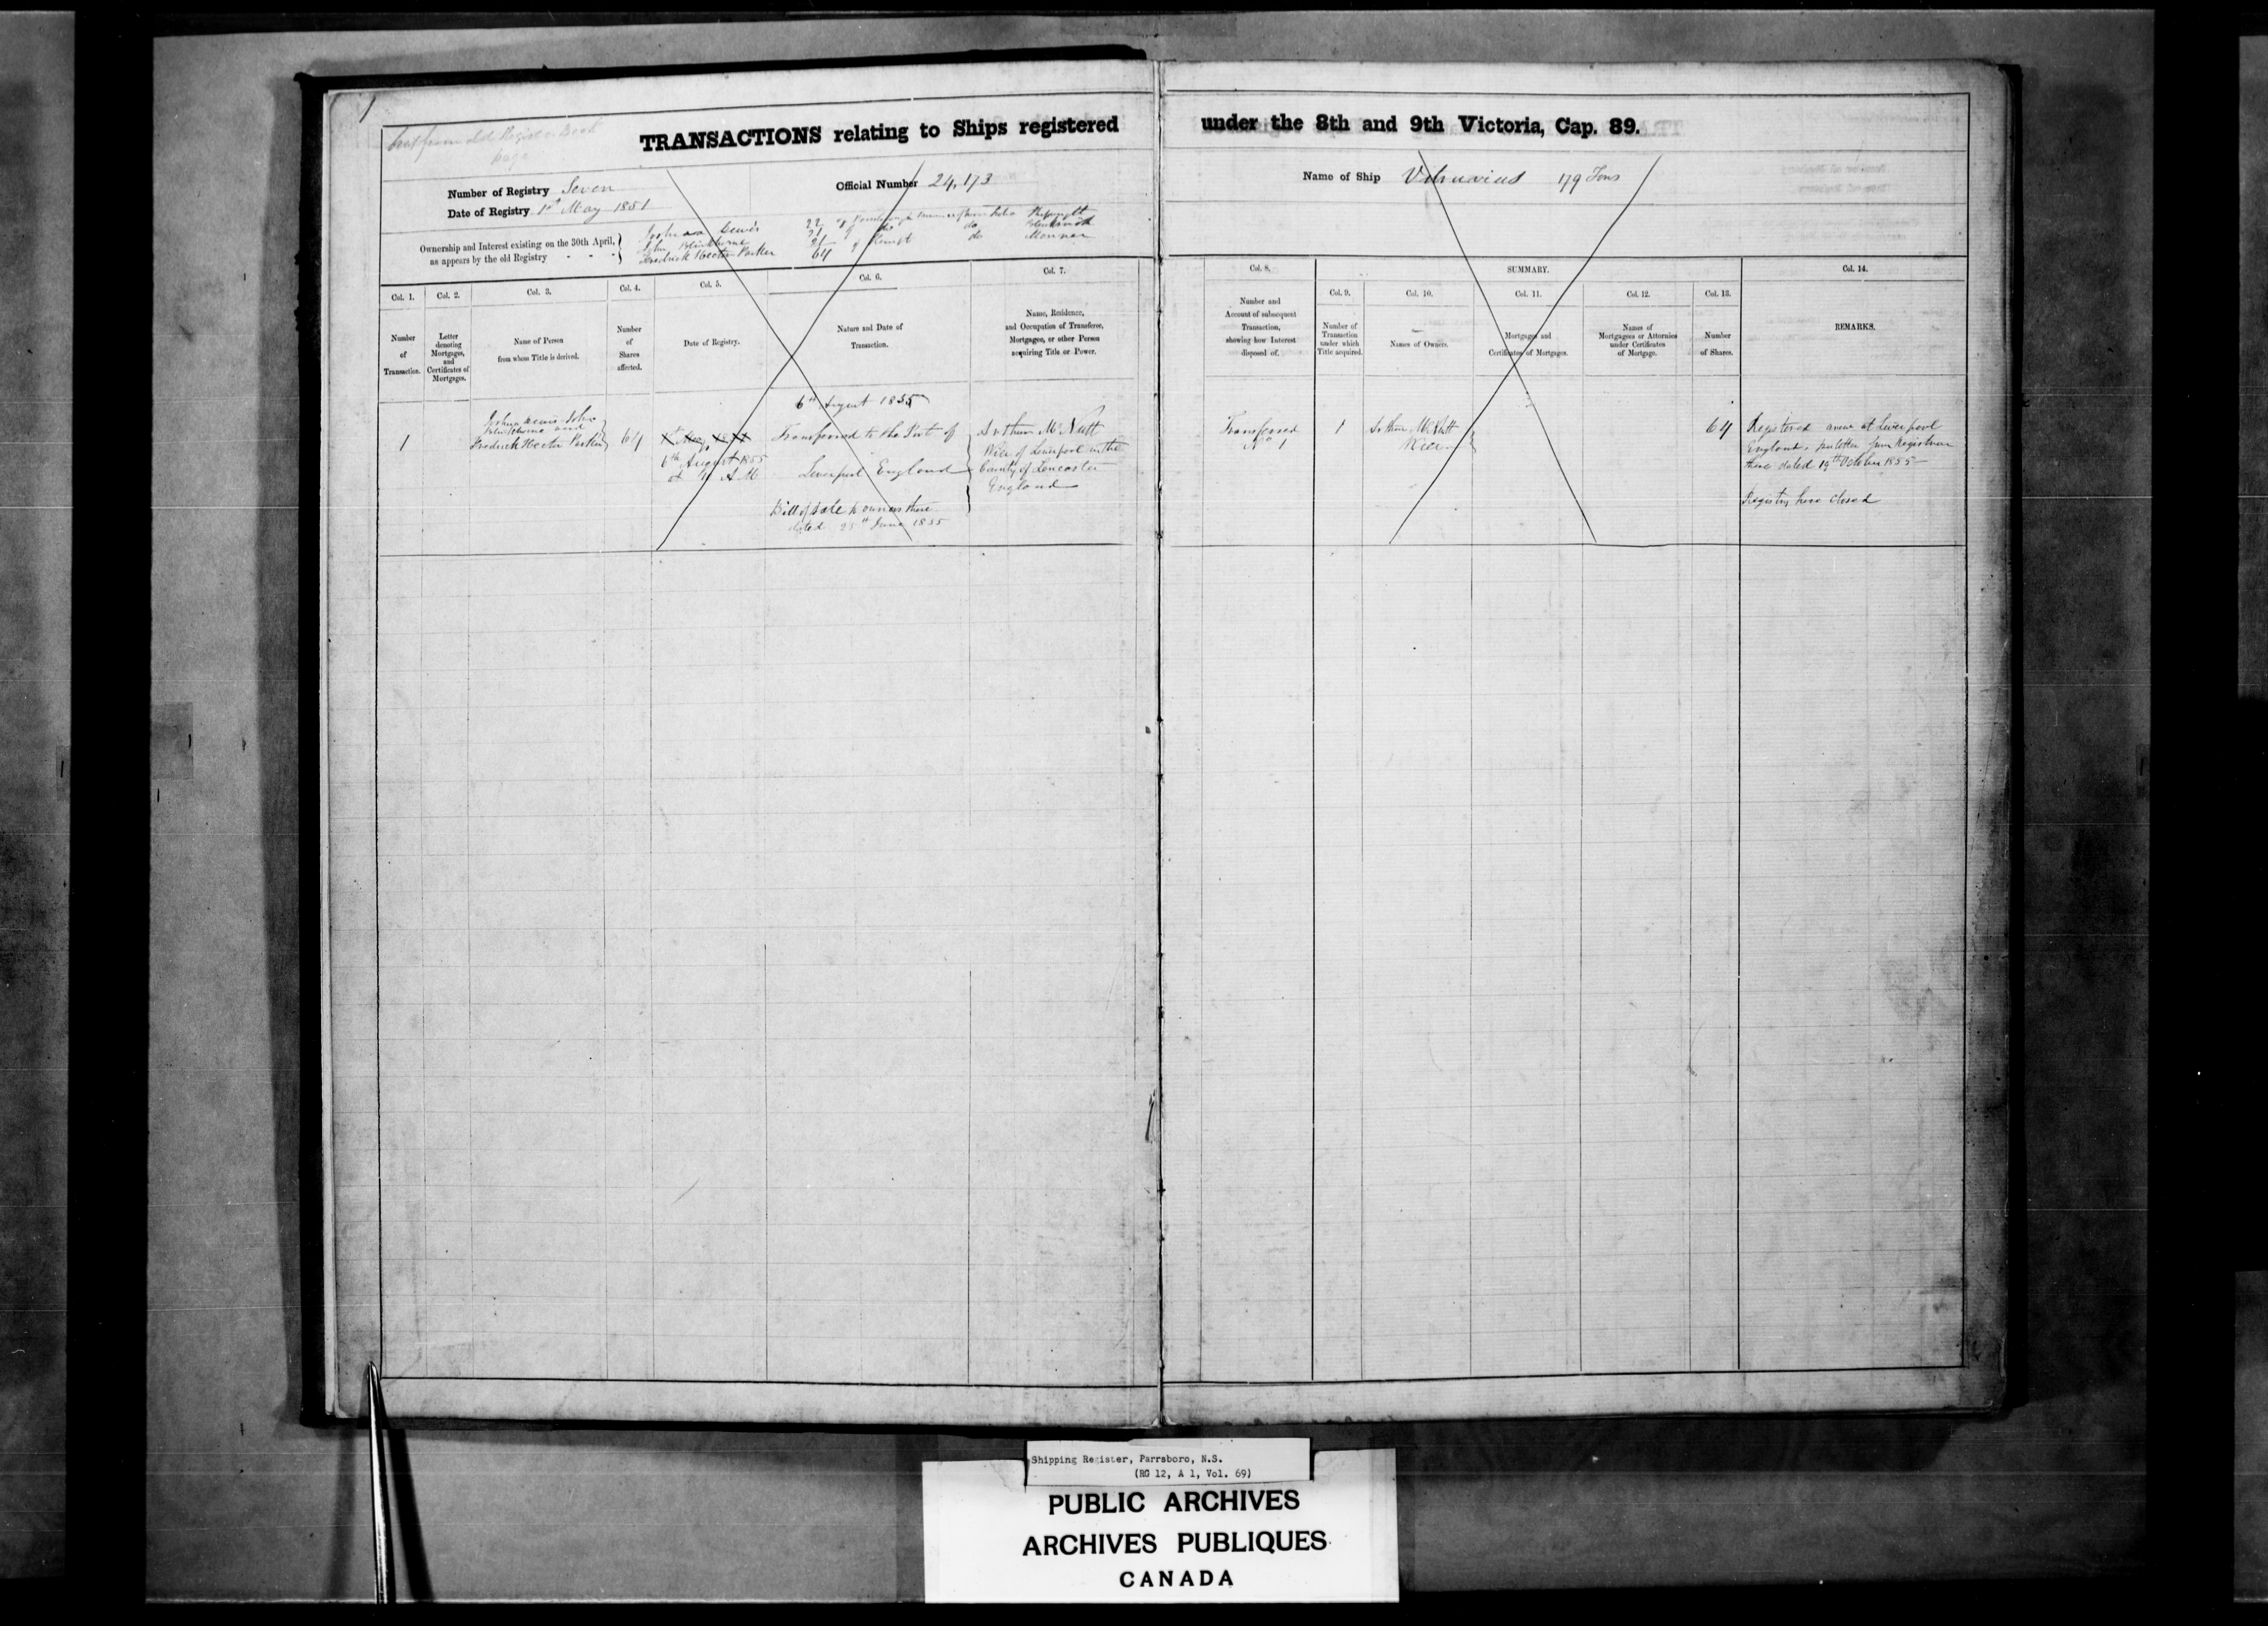 1
from old Register Book
page
TRANSACTIONS relating to Ships registered
under the 8th and 9th Victoria, Cap. 89.
Number of Registry Seven
Official Number 24,173
Date of Registry 1st May 1851
Name of Ship 179 Tons
Ownership and Interest existing on the 30th April,
as appears by the old Registry - - -
Joshua Lewis 22 of
John 21 of do do
Fredrick Hector Parker 21 of do
64
Col. 1.
Number
of
Transaction.
Col. 2.
Letter
denoting
Mortgages,
and
Certificates of
Mortgages.
Col. 3.
Name of Person
from whom Title is derived.
Col. 4.
Number
of
Shares
affected.
Col. 5.
Date of Registry.
Col. 6.
Nature and Date of
Transaction.
Col. 7.
Name, Residence,
and Occupation of Transferee,
Mortgagee, or other Person
acquiring Title or Power.
Col. 8.
Number and
Account of subsequent
Transaction,
showing how Interest
disposed of.
SUMMARY.
Col. 9.
Number of
Transaction
under which
Title acquired.
Col. 10.
Names of Owners.
Col. 11.
Mortgages and
Certificates of Mortgages.
Col. 12.
Names of
Mortgagees or Attornies
under Certificates
of Mortgage.
Col. 13.
Number
of Shares.
Col. 14.
REMARKS.
1
Joshua Lewis John
and
Fredrick Hector Parker
64
6th August 1855
at 11 A M
6th August 1855
Transferred to the Port of
Liverpool England
Bill of Sale to owners there
dated 25th June 1855
Arthur McNutt
Wier of Liverpool in the
County of Lancaster
England
Transferred
No 1
1
Arthur McNutt
Wier
64
Registered anew at Liverpool
England, per letter from Registrar
there dated 19th October 1855
Registry here closed
Shipping Register, Parrsboro, N.S.
(RG 12, A 1, Vol. 69)
PUBLIC ARCHIVES
ARCHIVES PUBLIQUES
CANADA